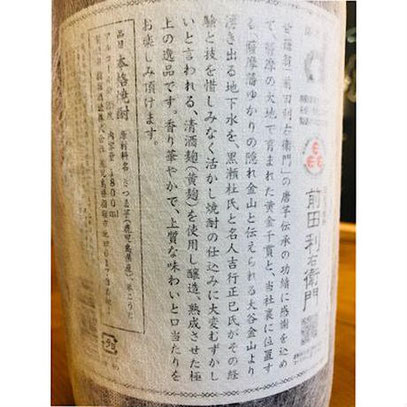 前田利右衛門
甘藷翁前田利右衛門」の唐芋伝承の功績に感謝を込め
て、薩摩の大地で育まれた黄金千貫と、当社裏に位置す
る、薩摩藩ゆかりの隠れ金山と伝えられる大谷金山より
湧き出る地下水を、黒瀬杜氏と名人吉行正巳氏がその経
験と技を惜しみなく活かし焼酎の仕込みに大変むずかし
いと言われる、清酒麹(黄麹)を使用し醸造、熟成させた極
上の逸品です。香り華やかで、上質な味わいと口当たりを
お楽しみ頂けます。
品目 本格焼酎 原材料名 さつま芋(鹿児島県産)、米こうじ
アルコール分 内容量 1800ml